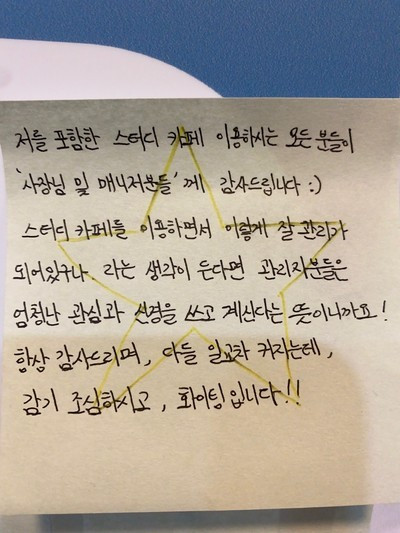 저를 포함한 스터디 카페 이용하시는 모든 분들이
'사장님 및 매니저분들'께 감사드립니다 :)
스터디 카페를 이용하면서 이렇게 잘 관리가
되어있구나. 라는 생각이 든다면 관리자분들은
엄청난 관심과 신경을 쓰고 계신다는 뜻이니까요!
항상 감사드리며, 다들 일교차 커지는데,
감기 조심하시고, 화이팅입니다!!